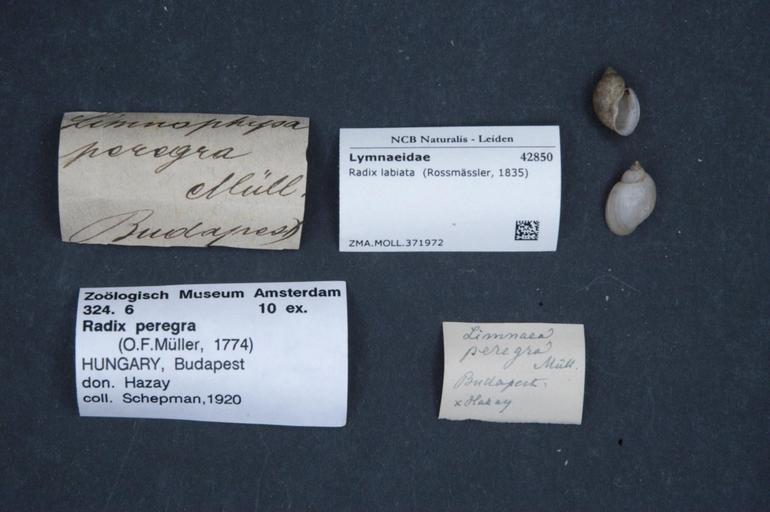 Limnophysa
peregra
Müll.
Budapest
NCB Naturalis - Leiden
Lymnaeidae 42850
Radix labiata (Rossmässler, 1835)
ZMA.MOLL.371972
Zoölogisch Museum Amsterdam
324. 6 10 ex.
Radix peregra
(O.F.Müller, 1774)
HUNGARY, Budapest
don. Hazay
coll. Schepman,1920
Limnaea
peregra
Müll.
Budapest.
x Hazay